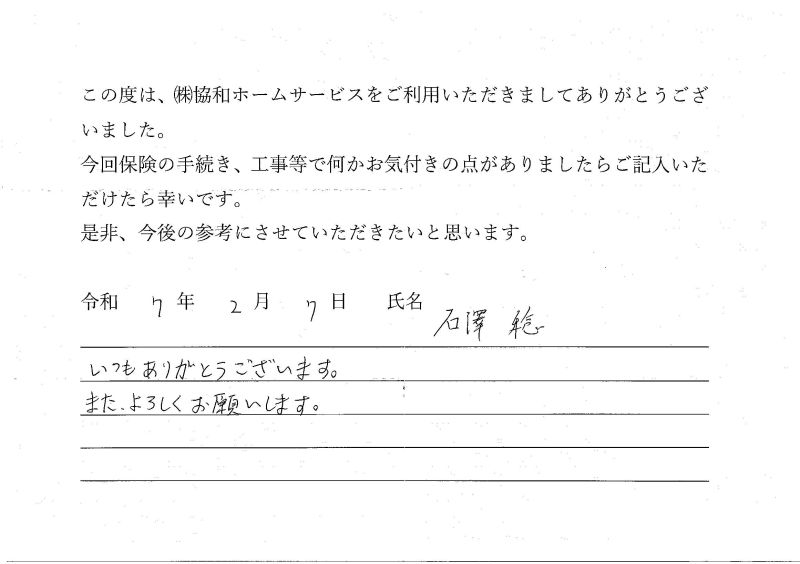 この度は、㈱協和ホームサービスをご利用いただきましてありがとうござ
いました。
今回保険の手続き、工事等で何かお気付きの点がありましたらご記入いた
だけたら幸いです。
是非、今後の参考にさせていただきたいと思います。
令和 7 年 2 月 7 日 氏名 石澤
いつもありがとうございます。
また、よろしくお願いします。